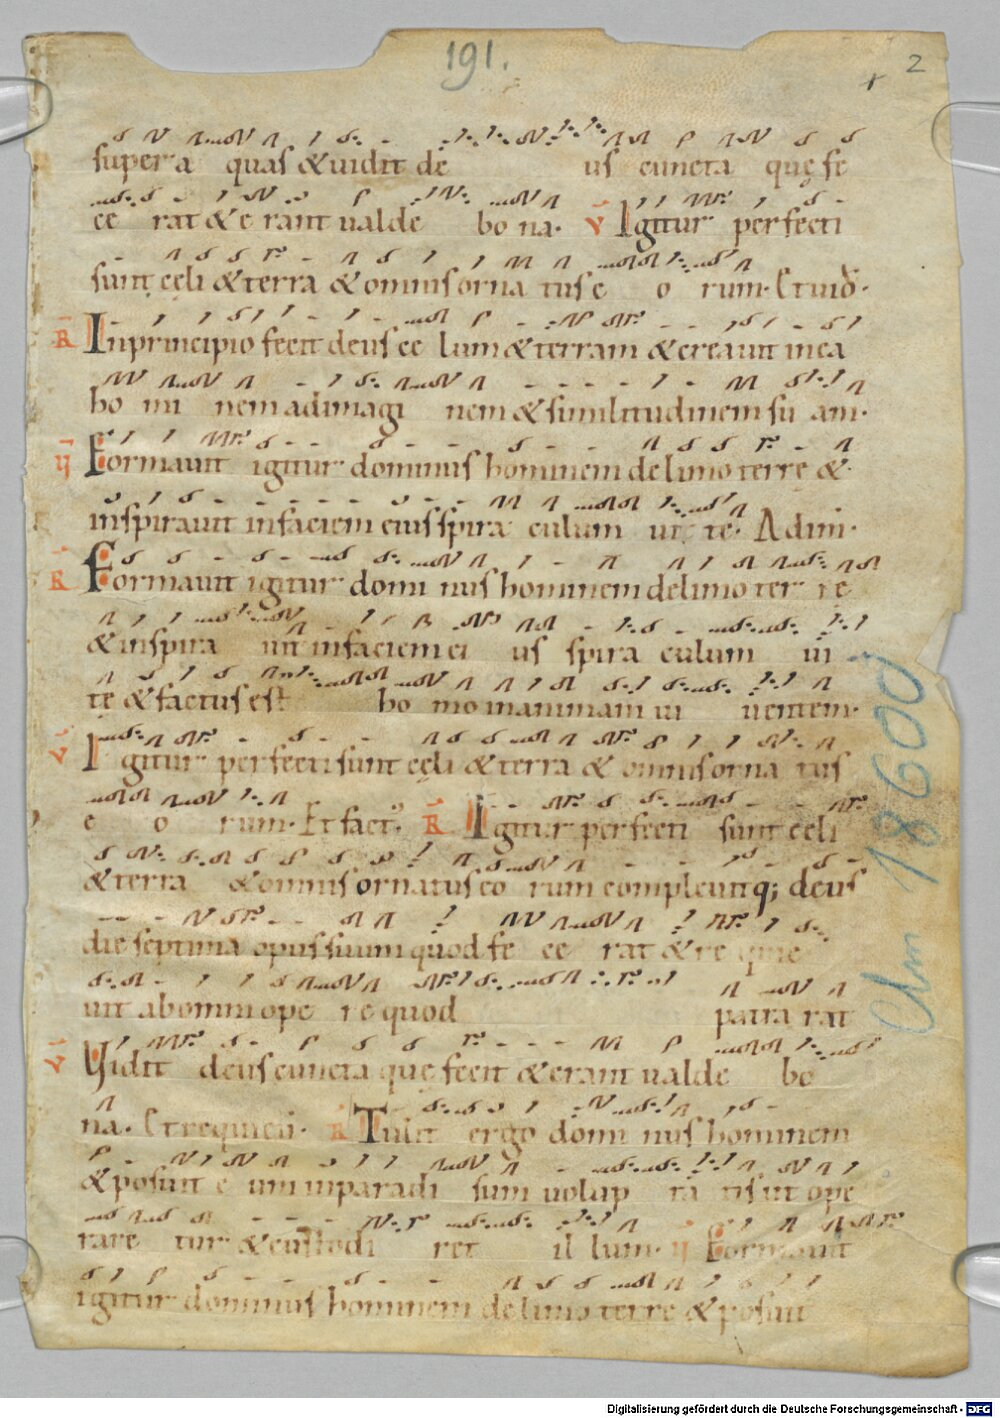 191.
2
super a quas & uidit de us cuncta quę se
ce rat & e rant ualde bo na. v Igitur perfecti
sunt cęli & terra & omnis orna tus e o rum. Et uid̄.
R Inprincipio fecit deus ce lum & terram & creauit in ea
ho mi nem ad imagi nem & similitudinem su am.
v Formauit igitur dominus hominem de limo terre &
inspirauit infaciem eius spira culum ui te. Ad im.
R Formauit igitur domi nus hominem de limo ter re
& inspira uit infaciem ei us spira culum ui
te & factus est ho mo inanimam ui uentem.
v I gitur perfecti sunt cęli & terra & omnis orna tus
e o rum. Et fact. R Igitur perfecti sunt celi
& terra & omnis ornatus eo rum compleuitq; deus
die septima opus suum quod fe ce rat & re quie
uit abomni ope re quod patra rat
v Vidit deus cuncta quę fecit & erant ualde bo
na. Et requieu. R Tulit ergo domi nus hominem
& posuit e um inparadi sum uolup ta tis ut ope
rare tur & custodi ret il lum. v Formauit
igitur dominus hominem de limo terre & posuit
Clm 18600
Digitalisierung gefördert durch die Deutsche Forschungsgemeinschaft - DFG